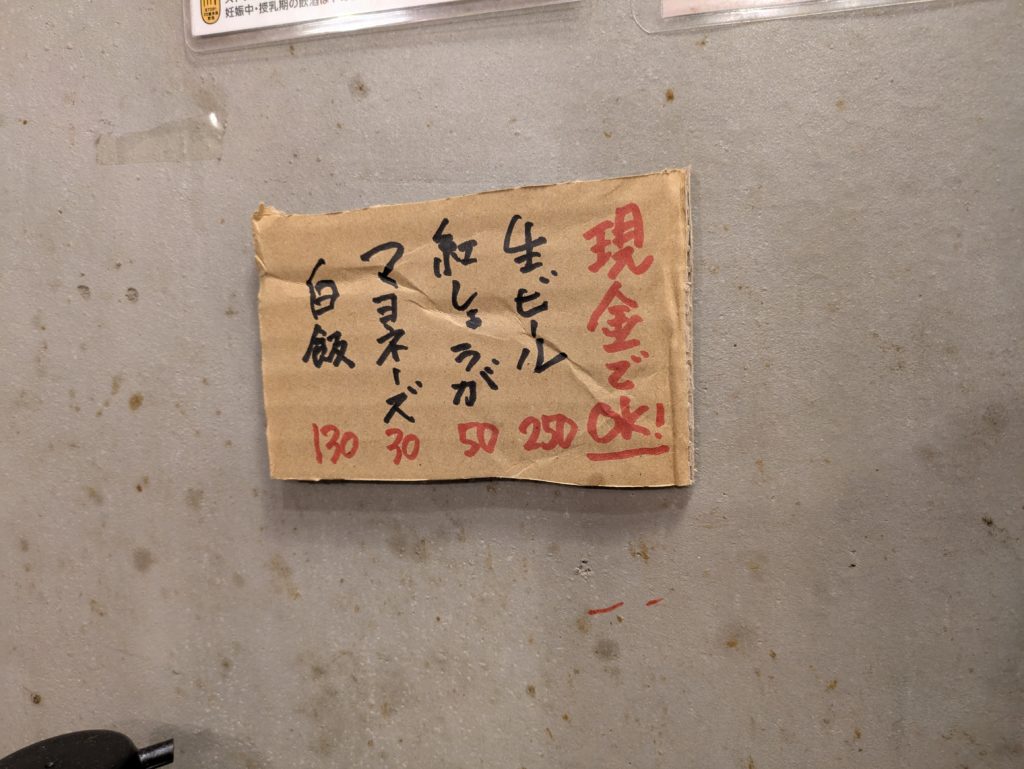 妊娠中・授乳期の飲酒は
現金でOK!
生ビール 250
紅しょうが 50
マヨネーズ 30
白飯 130